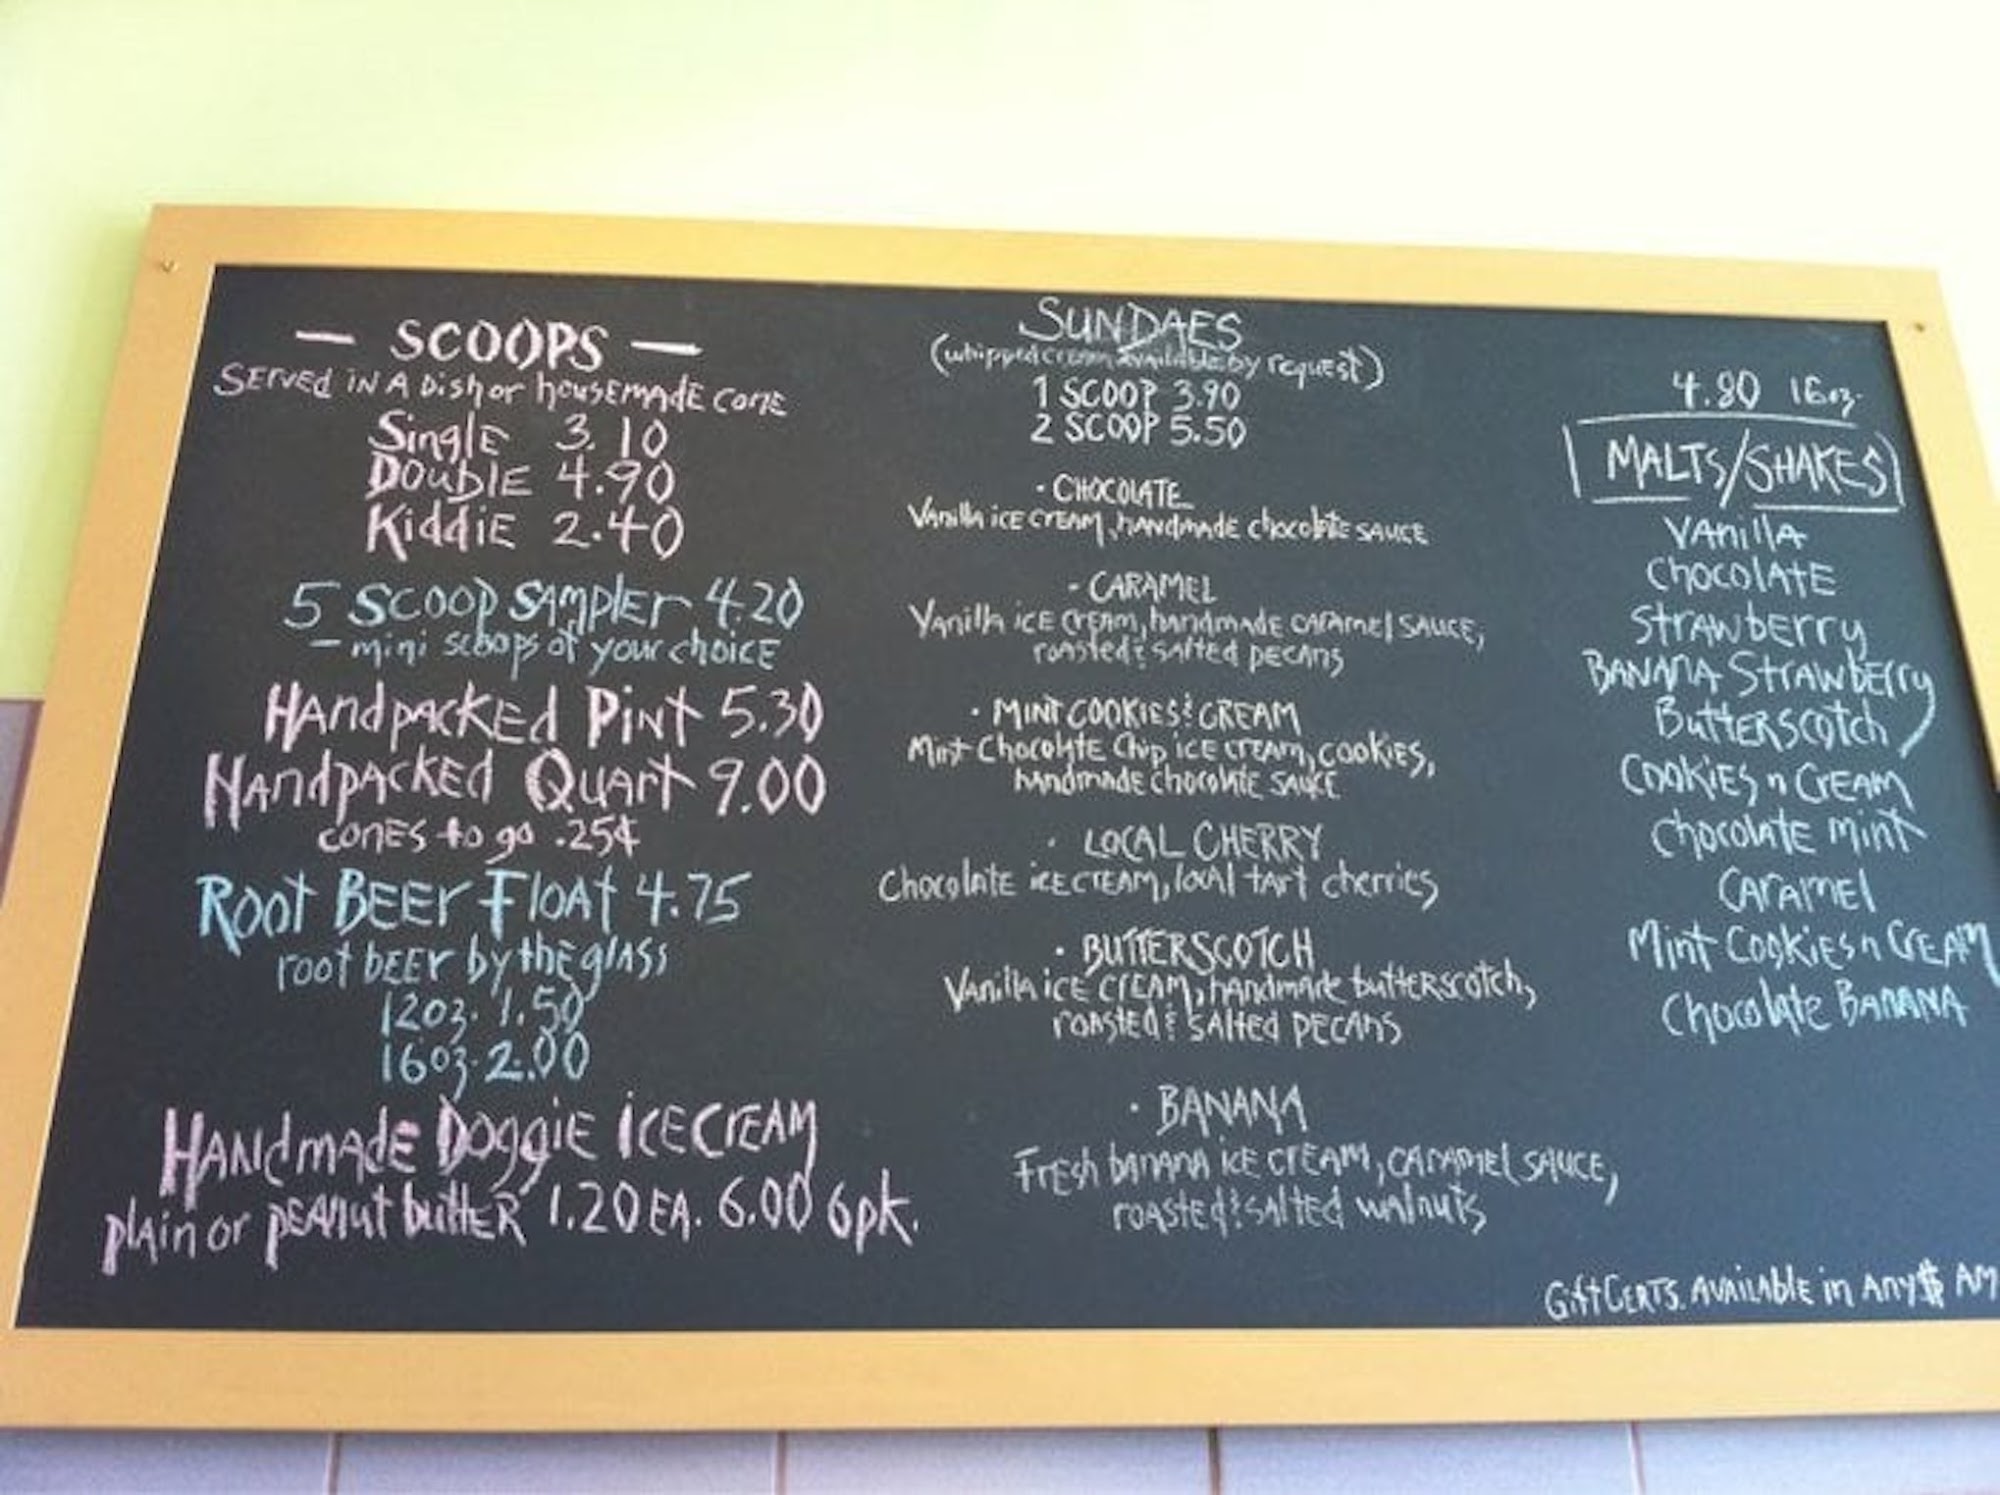 — SCOOPS —
SERVED IN A Dish or housemade cone
Single 3.10
Double 4.90
Kiddie 2.40
5 Scoop Sampler 4.20
- mini scoops of your choice
Handpacked Pint 5.30
Handpacked Quart 9.00
cones to go .25¢
Root Beer Float 4.75
root beer by the glass
12oz. 1.50
16oz. 2.00
Handmade Doggie ice cream
plain or peanut butter 1.20 EA. 6.00 6pk.
SUNDAES
(whipped cream available by request)
1 SCOOP 3.90
2 SCOOP 5.50
· CHOCOLATE
Vanilla ice cream, handmade chocolate sauce
- CARAMEL
Vanilla ice cream, handmade caramel sauce,
roasted & salted pecans
· MINT COOKIES & CREAM
Mint Chocolate Chip ice cream, cookies,
handmade chocolate sauce
· LOCAL CHERRY
Chocolate ice cream, local tart cherries
· BUTTERSCOTCH
Vanilla ice cream, handmade butterscotch,
roasted & salted pecans
· BANANA
Fresh banana ice cream, caramel sauce,
roasted & salted walnuts
4.80 16oz.
MALTS/SHAKES
Vanilla
Chocolate
Strawberry
Banana Strawberry
Butterscotch
Cookies n Cream
Chocolate Mint
Caramel
Mint Cookies n Cream
Chocolate Banana
Gift Certs. Available in Any $ AM